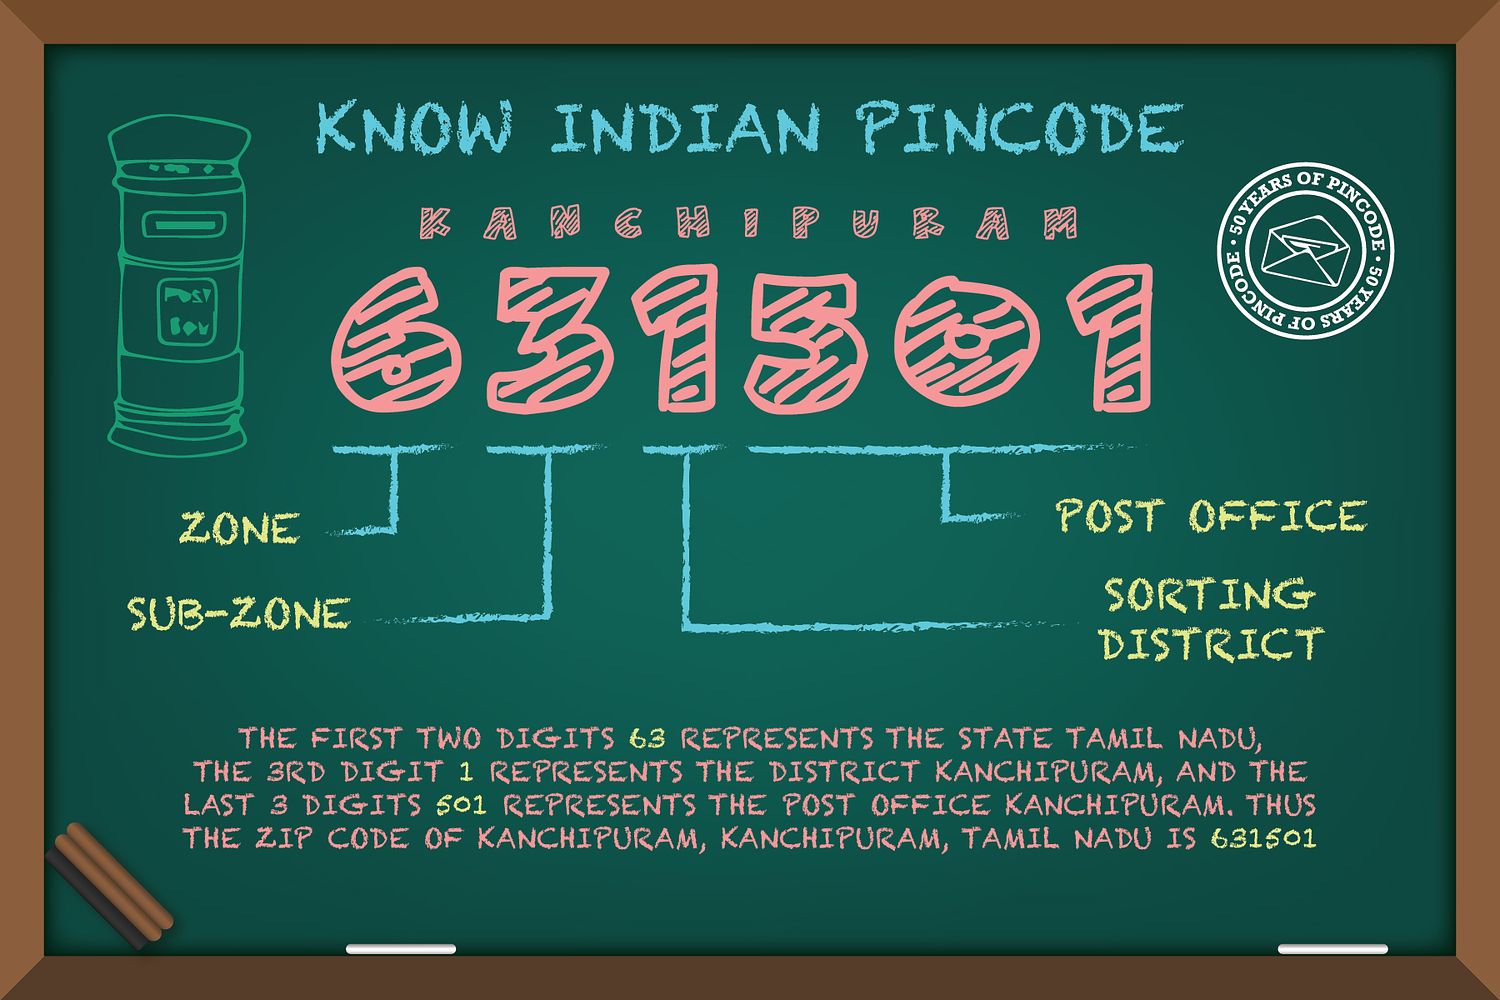 KNOW INDIAN PINCODE
KANCHIPURAM
631501
50 YEARS OF PINCODE • 50 YEARS OF PINCODE •
POST
BOX
ZONE
POST OFFICE
SUB-ZONE
SORTING
DISTRICT
THE FIRST TWO DIGITS 63 REPRESENTS THE STATE TAMIL NADU,
THE 3RD DIGIT 1 REPRESENTS THE DISTRICT KANCHIPURAM, AND THE
LAST 3 DIGITS 501 REPRESENTS THE POST OFFICE KANCHIPURAM. THUS
THE ZIP CODE OF KANCHIPURAM, KANCHIPURAM, TAMIL NADU IS 631501